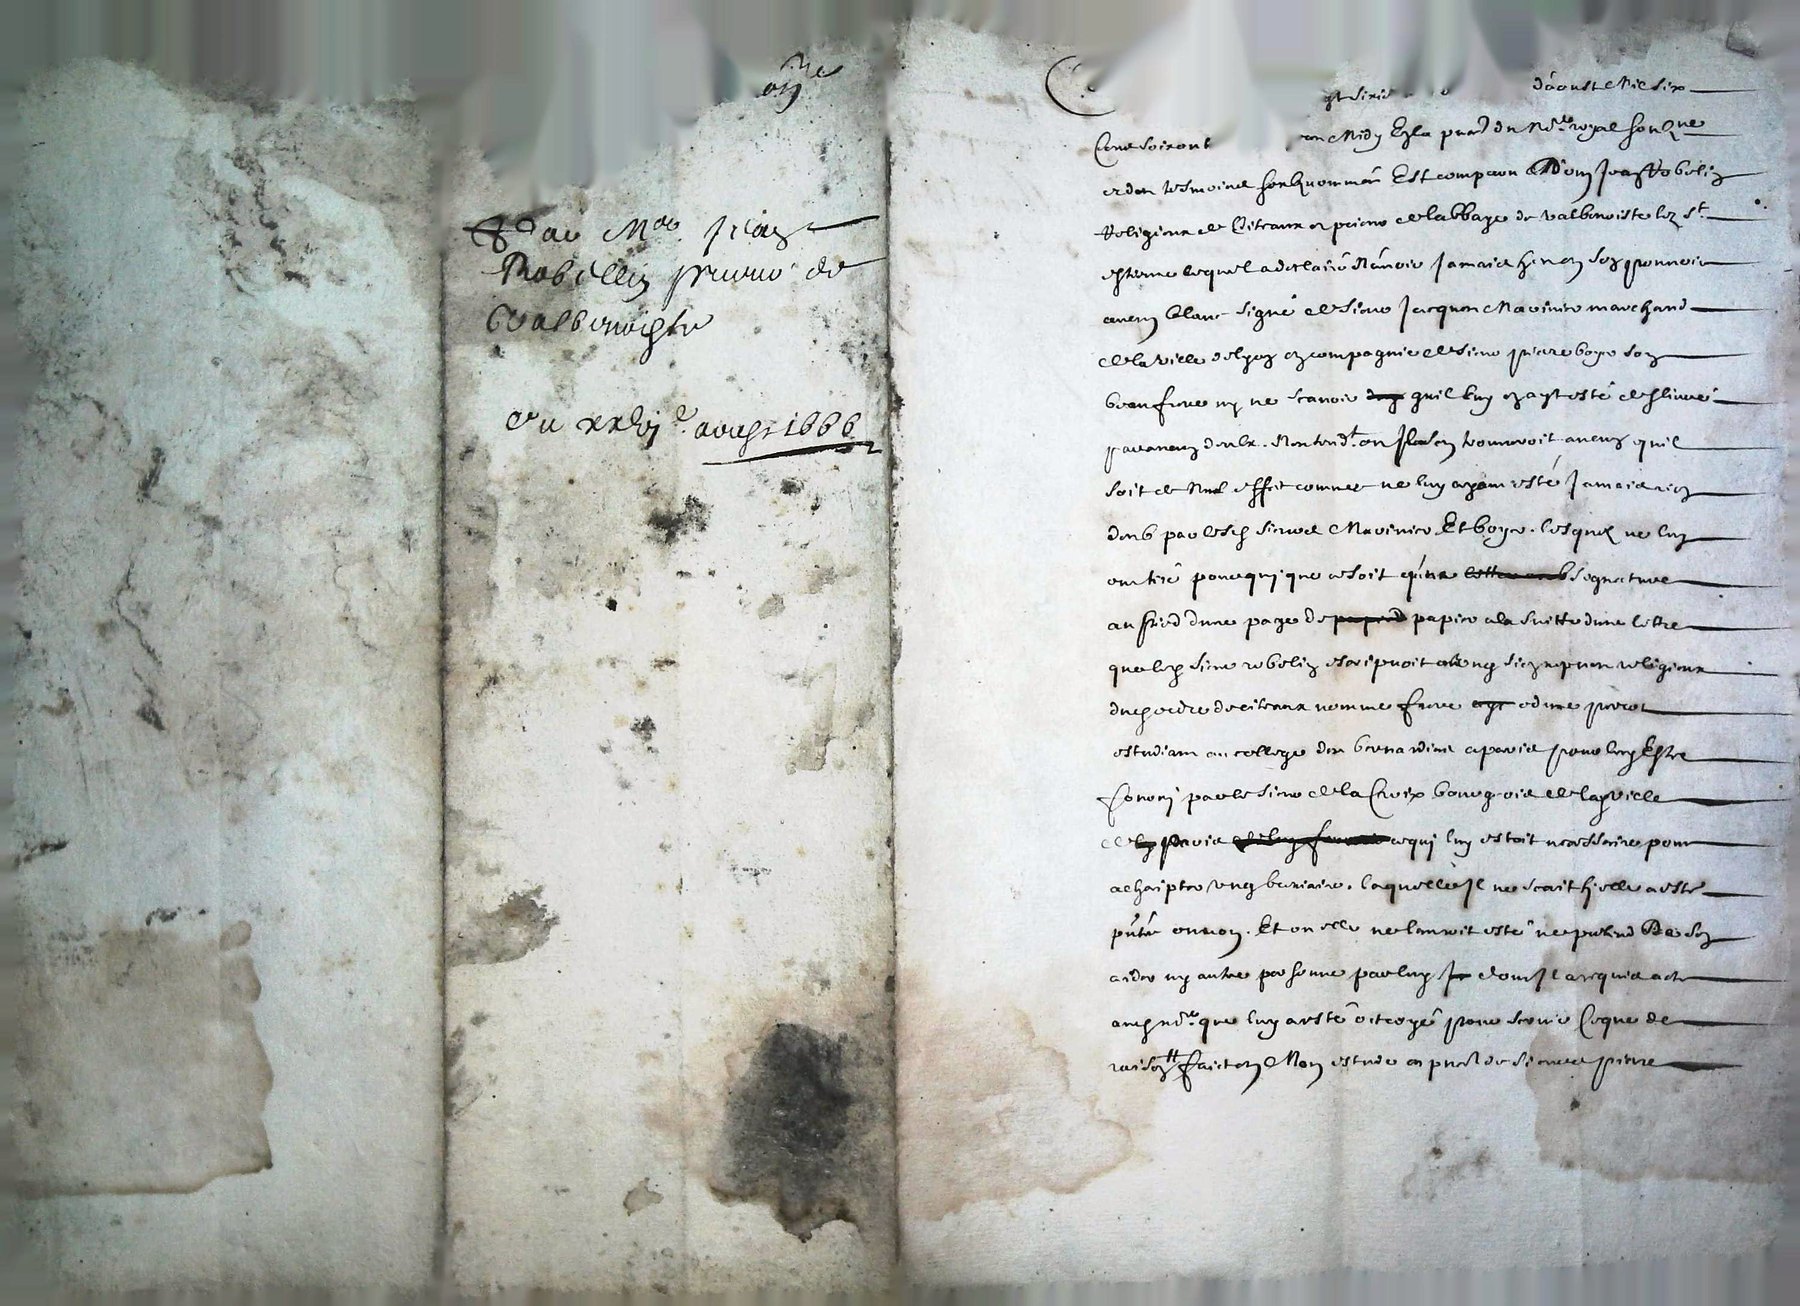 Par Mre Jean
Robellin prieur de
Valbenoiste
Du xxvj e aougst 1666
d'aoust Mil six
Cens soixante Midy Et la pnt du Nore royal soubzne
et des tesmoins soubznommés Est comparu Dom Jean Robelin
Religieux de Citeaux et prieur de labbaye de valbenoiste lez st
estienne lequel a desclairé N'avoir Jamais heu en son pouvoir
aucun blanc signé de sieur Jacques Mavinier marchand
de la ville de lyon en compagnie de sieur pierre boyer son
beau frere ny ne scavoir quil luy en ayt esté deslivré
par aucun deulx. Nontendt ou Il sen trouveroit aucun quil
soit de Nul effet comme ne luy ayant esté Jamais rien
par lesd sieurs Mavinier Et boyer. lesquelz ne luy
ont tiré pour qui que ce soit qune signature
au pied dune page de papier a la suitte dune lettre
que led sieur robelin escripvoit a ung sien religieux
dud ordre de citeaux nomme frere edme
estudiant au college des bernardins a paris pour luy Estre
fourni par le sieur de la Croix bourgeois de lad ville
de paris ce qui luy estoit necessaire pour
achaipter ung breviaire. laquelle Il ne scait sy elle a esté
ou non. Et ou elle ne lauroit esté ne pretend De sen
aider ny autre personne par luy dont Il a requis acte
aud nore que luy a esté octroyé pour servir Ce que de
raison faict en Mon estude en pnce de sieurs pierre